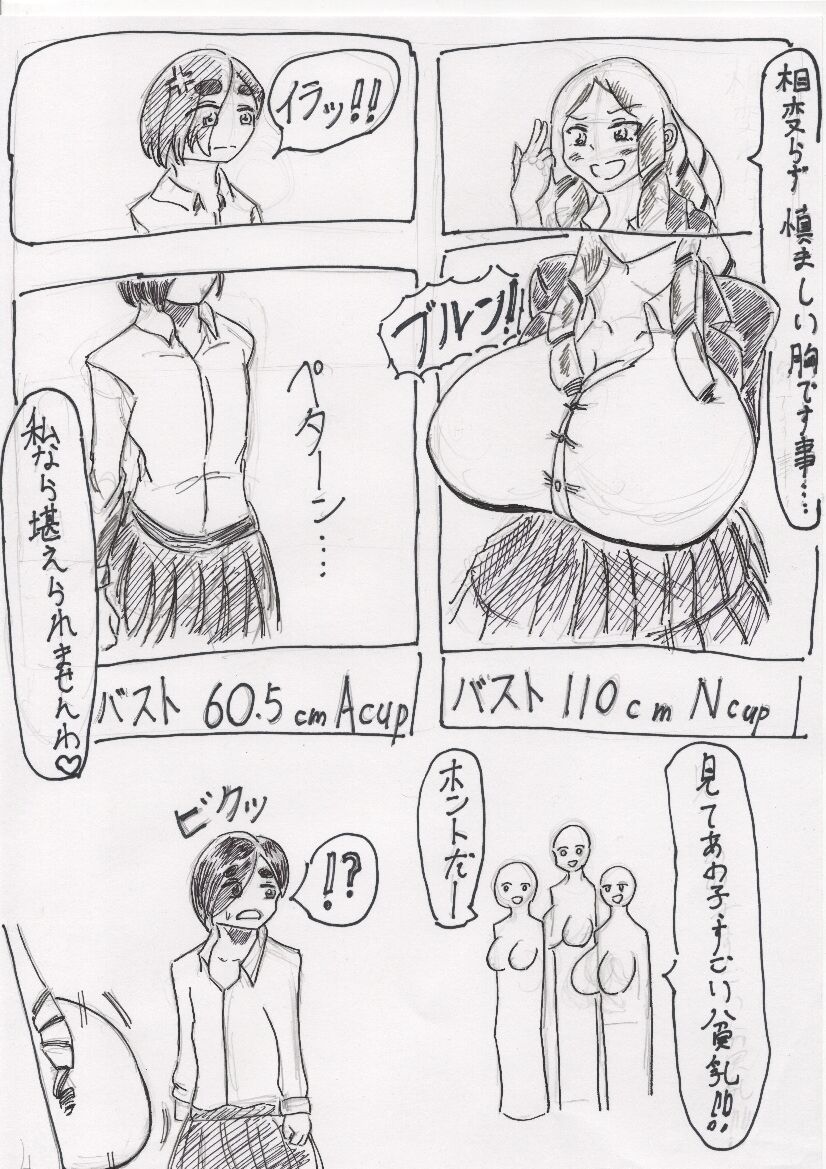 相変らず 慎ましい胸です事…
イラッ!!
ブルン!!
ペターン…
私なら堪えられませんわ♡
バスト 110cm Ncup
バスト 60.5cm Acup
見てあの子すごい貧乳!!!
ホントだー
ビクッ
!?